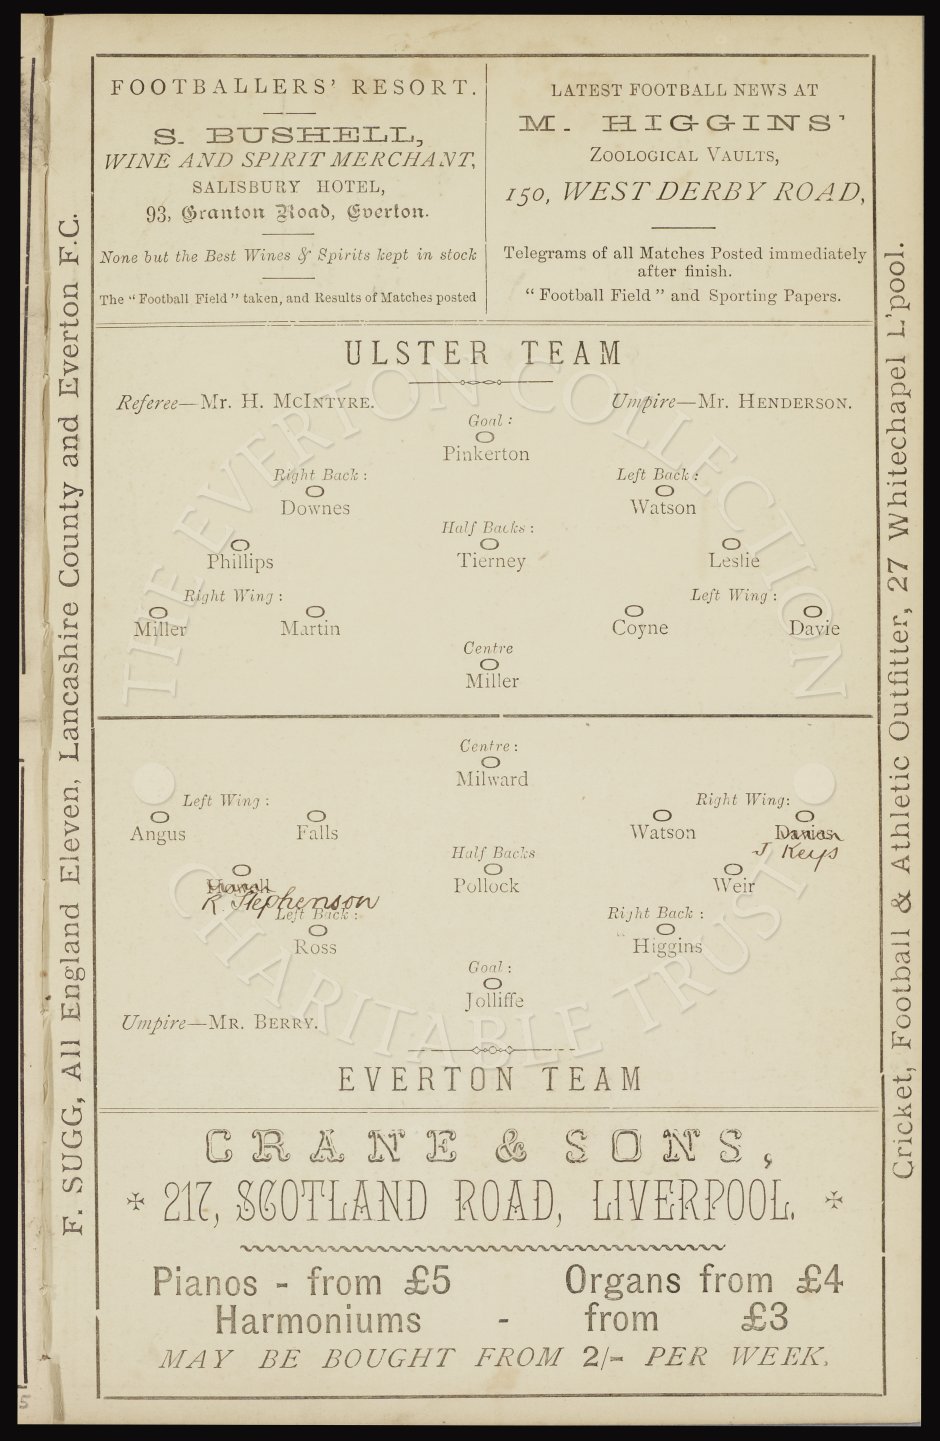 FOOTBALLERS' RESORT.
S. BUSHELL,
WINE AND SPIRIT MERCHANT,
SALISBURY HOTEL,
93, Granton Road, Everton.
None but the Best Wines & Spirits kept in stock
The "Football Field" taken, and Results of Matches posted
LATEST FOOTBALL NEWS AT
M. HIGGINS'
ZOOLOGICAL VAULTS,
150, WEST DERBY ROAD,
Telegrams of all Matches Posted immediately
after finish.
"Football Field" and Sporting Papers.
F. SUGG, All England Eleven, Lancashire County and Everton F.C.
ULSTER TEAM
Referee—Mr. H. MCINTYRE. Umpire—Mr. HENDERSON.
Goal:
Pinkerton
Right Back: Left Back:
Downes Watson
Half Backs:
Phillips Tierney Leslie
Right Wing: Left Wing:
Miller Martin Coyne Davie
Centre
Miller
Centre:
Milward
Left Wing: Right Wing:
Angus Falls Watson Davies
J Keys
Half Backs
Pollock Weir
R Stephenson
Left Back: Right Back:
Ross Higgins
Goal:
Jolliffe
Umpire—MR. BERRY.
EVERTON TEAM
CRANE & SONS,
217, SCOTLAND ROAD, LIVERPOOL.
Pianos - from £5 Organs from £4
Harmoniums - from £3
MAY BE BOUGHT FROM 2/- PER WEEK.
Cricket, Football & Athletic Outfitter, 27 Whitechapel L'pool.
THE EVERTON COLLECTION
CHARITABLE TRUST
5